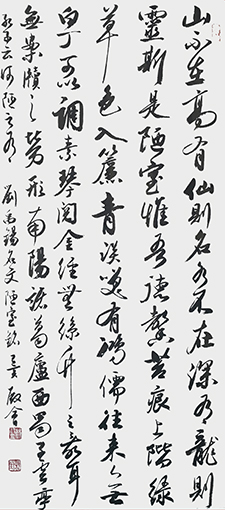 山不在高有仙則名水不在深有龍則
靈斯是陋室惟吾德馨苔痕上階綠
草色入簾青談笑有鴻儒往來無
白丁可以調素琴閱金經無絲竹之亂耳
無案牘之勞形南陽諸葛廬西蜀子雲亭
孔子云何陋之有 劉禹錫 文陋室銘